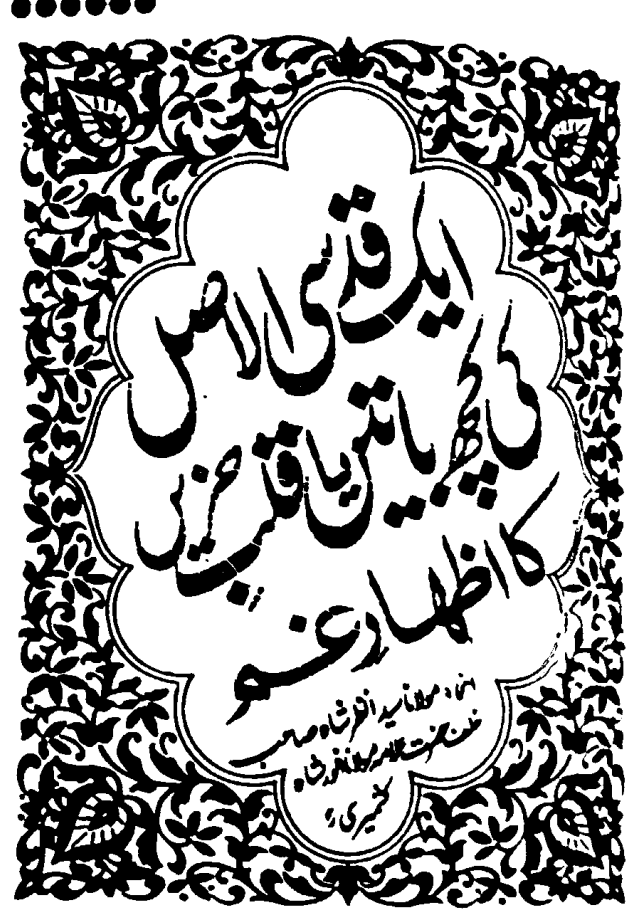 ایک قدسی الاصل
کی کچھ باتیں یا قلب حزیں
کا اظہار غم
از: مولانا سید انظر شاہ صاحب
خلف حضرت علامہ مولانا انور شاہ
کشمیری رح